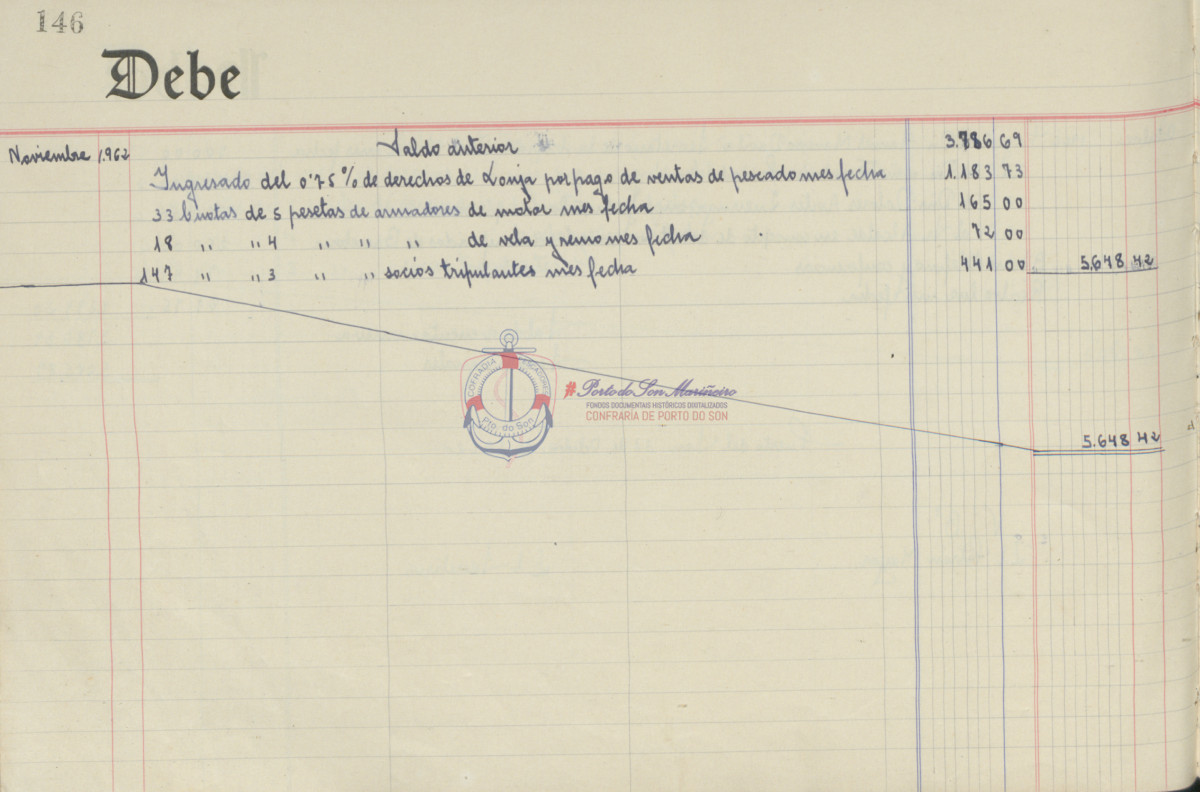 146
Debe
Noviembre 1.962 Saldo anterior 3.786 69
Ingresado del 0'75 % de derechos de Lonja por pago de ventas de pescado mes fecha 1.183 73
33 Cuotas de 5 pesetas de armadores de motor mes fecha 165 00
18 " " 4 " " " de vela y remo mes fecha 72 00
147 " " 3 " " socios tripulantes mes fecha 441 00 5.648 42
COFRADIA PESCADORES
Pto. do Son
#Porto do Son Mariñeiro
FONDOS DOCUMENTAIS HISTÓRICOS DIXITALIZADOS
CONFRARIA DE PORTO DO SON
5.648 42